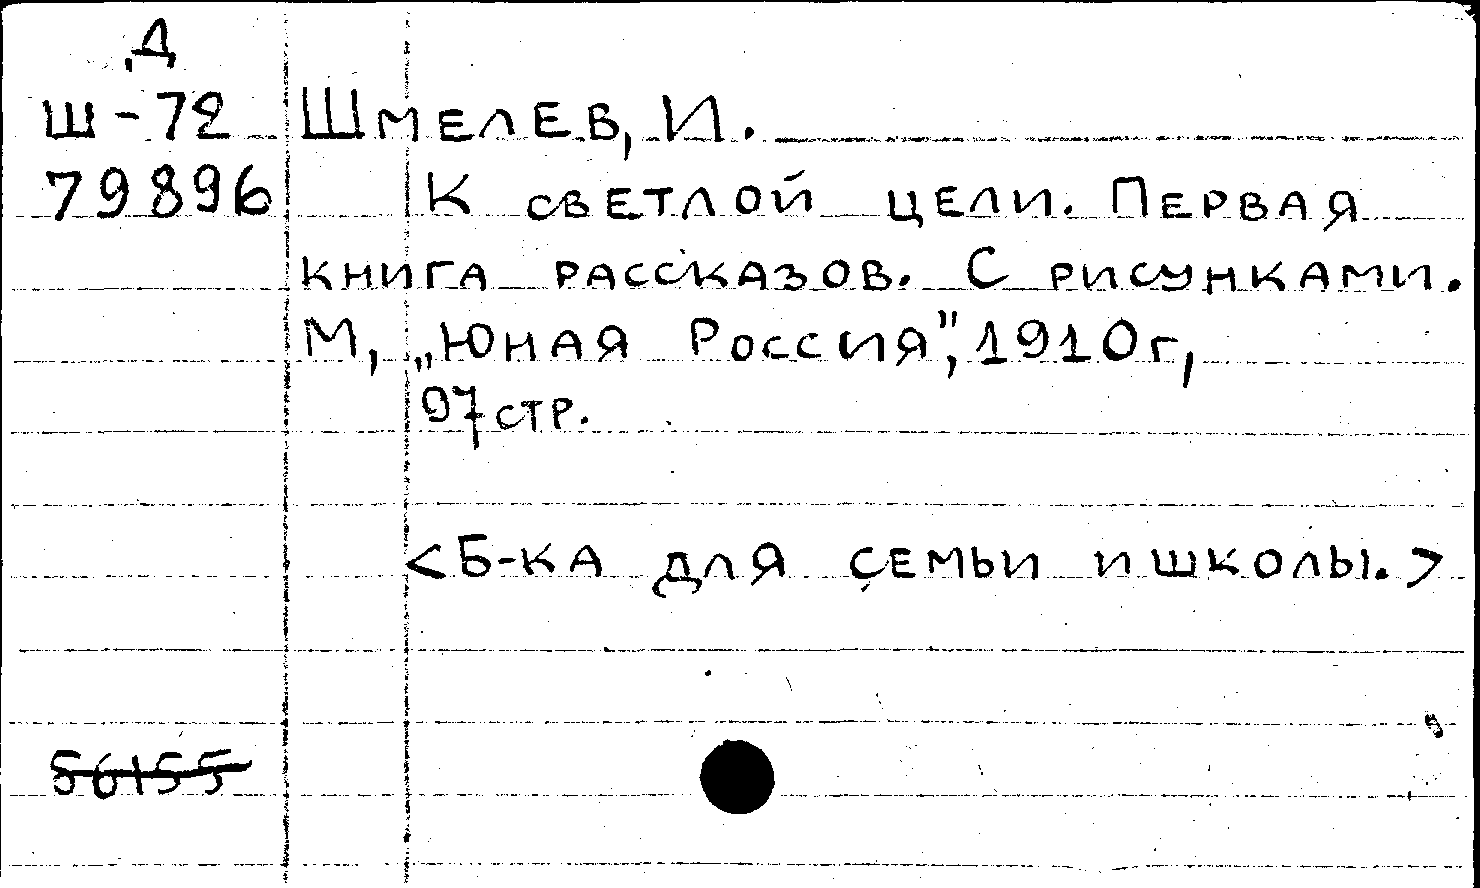 Д
Ш-72 Шмелев, И.
79896 К светлой цели. Первая
книга рассказов. С рисунками.
М, „Юная Россия", 1910г,
97стр.
<Б-ка для семьи и школы.>
56155